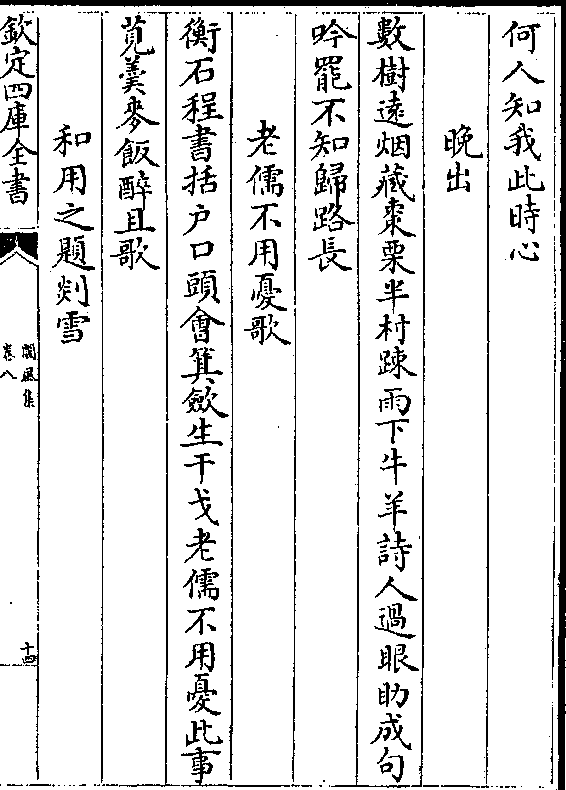 何人知我此時心
晚出
數樹遠烟藏棗栗半村踈雨下牛羊詩人過眼助成句
吟罷不知歸路長
老儒不用憂歌
衡石程書括户口頭會箕歛生干戈老儒不用憂此事
莧羮麥飯醉且歌
和用之題剡雪
欽定四庫全書
閬風集
卷八
十四